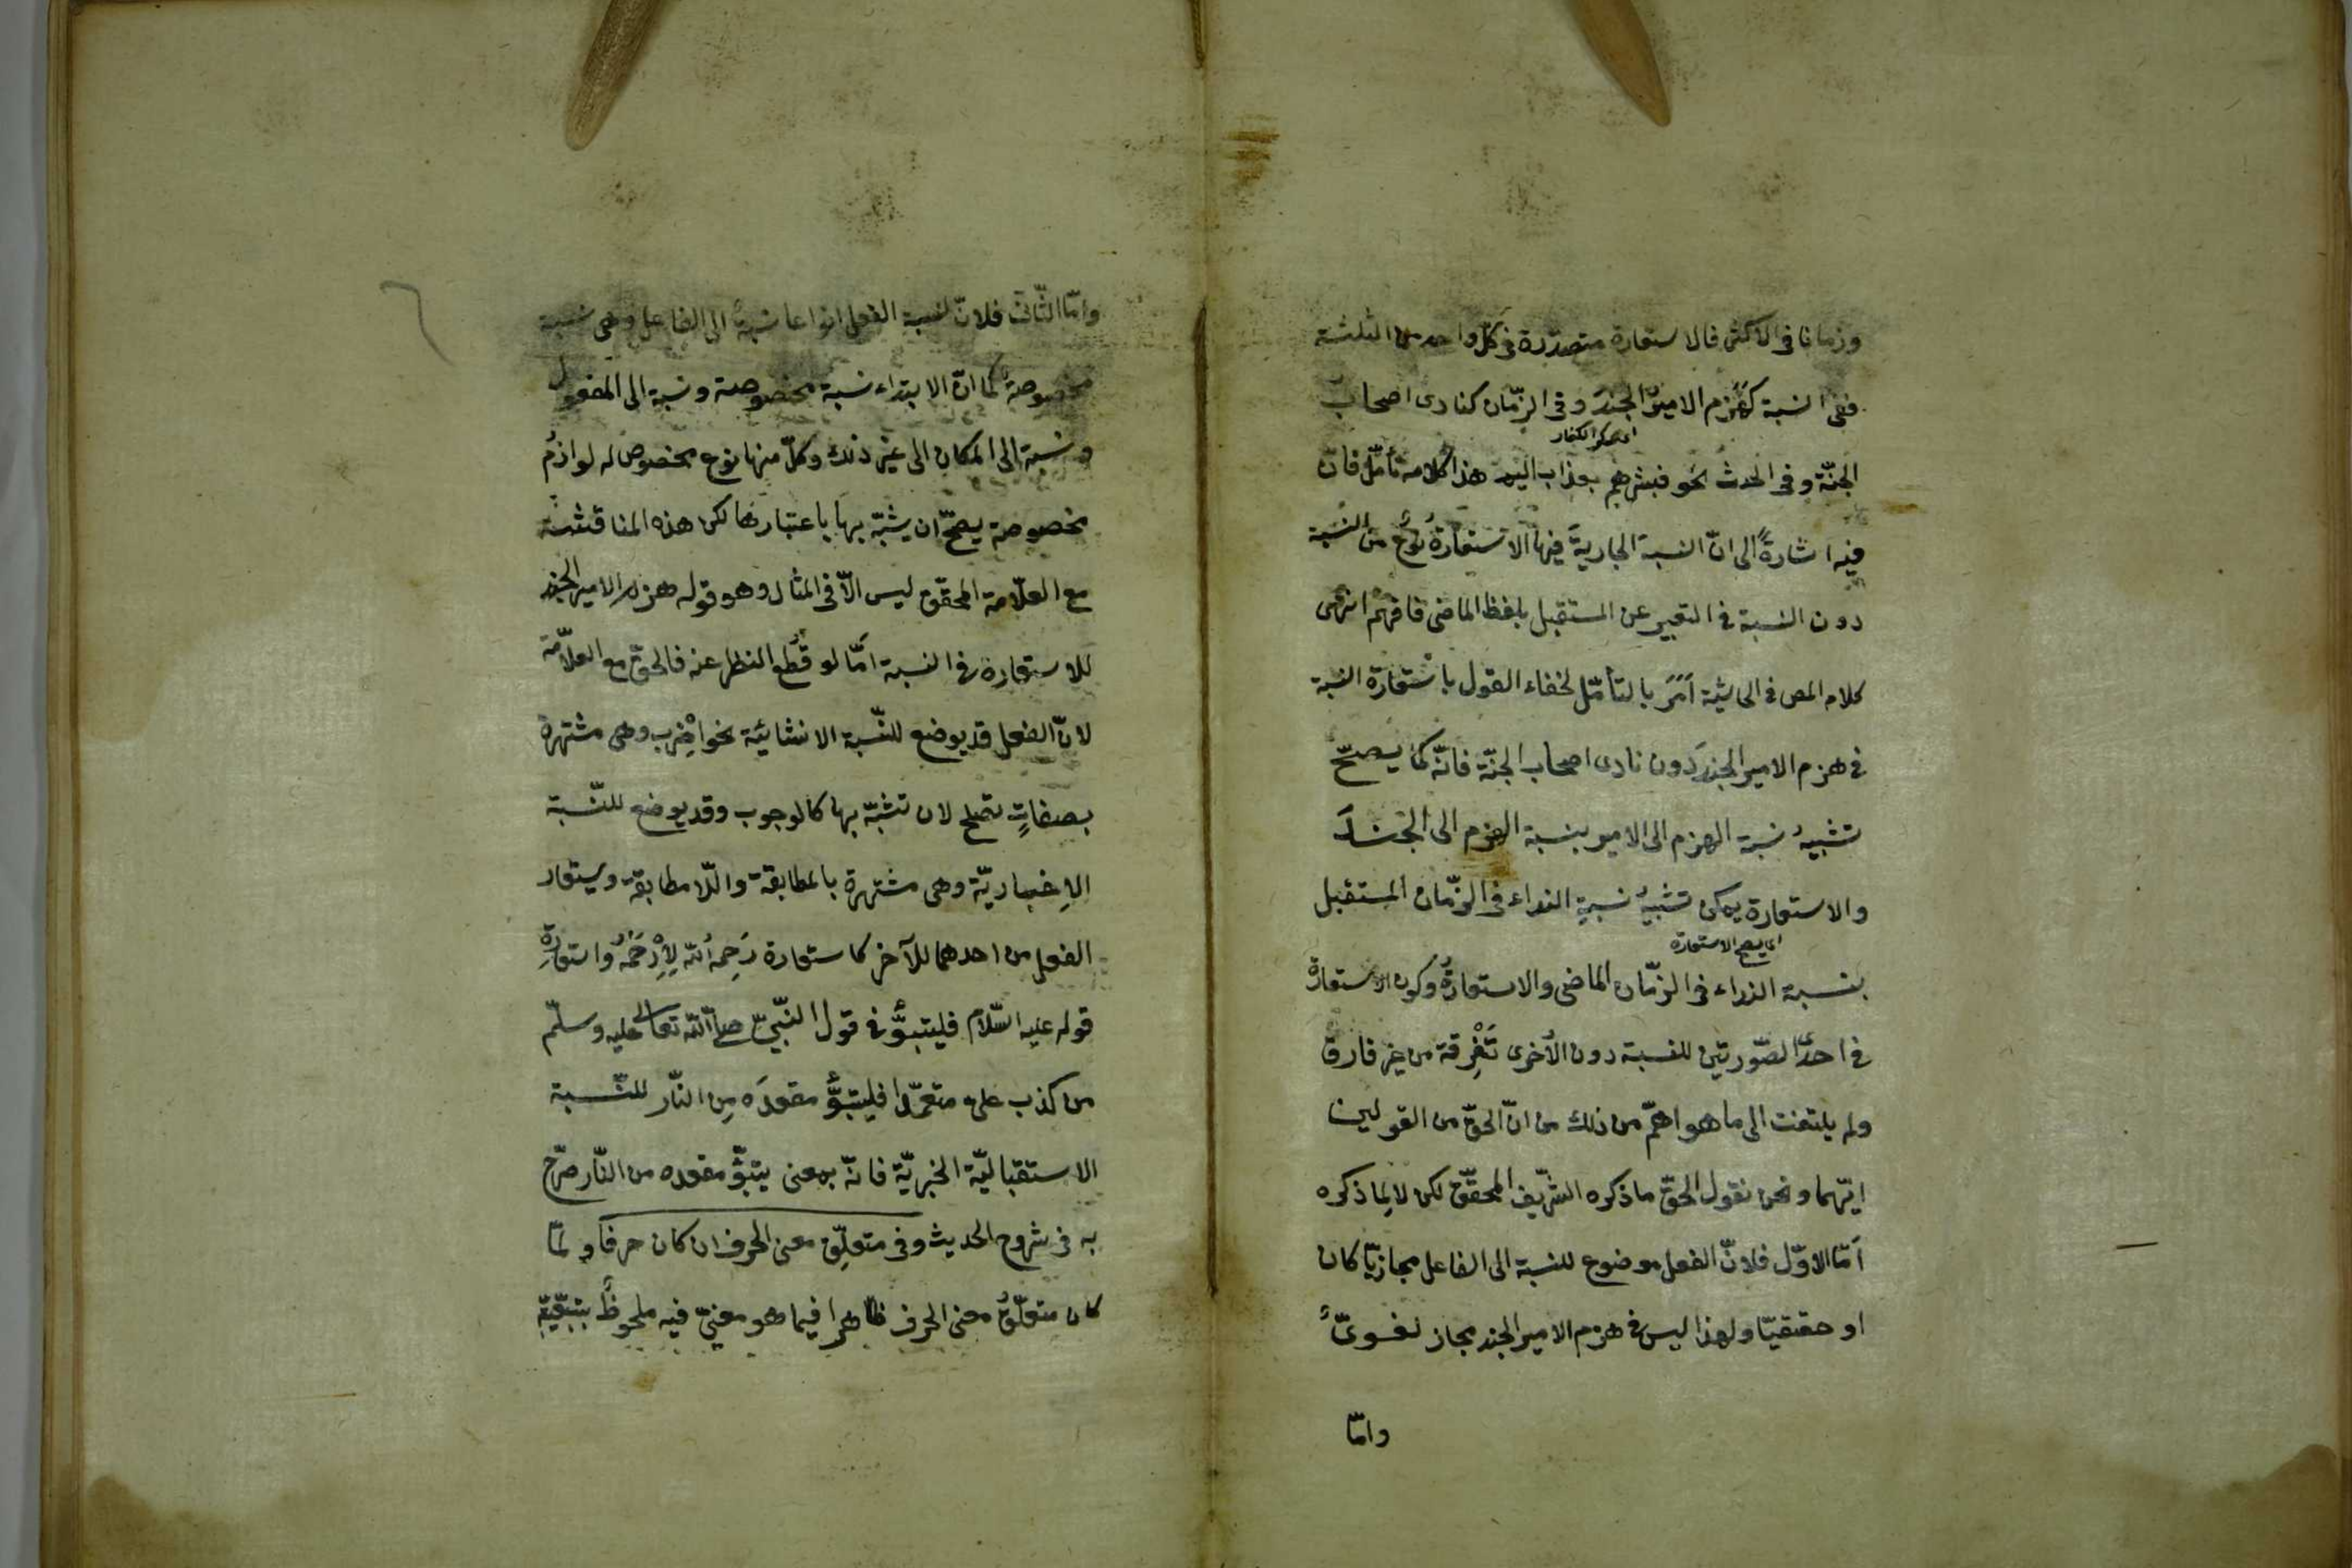 وزمانا فى الاكثر فالاستعارة متصوّرة فى كلّ واحد من الثلثة
ففى النسبة كهَزم الاميرُ الجندَ وفى الزّمان كنادى اصحاب
الجنّة وفى الحدث نحو فبشرهم بعذاب اليم هذا كلامه تأمّل فانّ
فيه اشارةً الى انّ النسبة الجاريةَ فيها الاستعارةُ نوعٌ من النسبة
دون النسبة فى التعبير عن المستقبل بلفظ الماضى فافهم انتهى
كلام المص فى الحاشية اَمَرَ بالتأمّل لخفاء القول باستعارة النسبة
فى هزم الامير الجندَ دون نادى اصحاب الجنّة فانّه كما يصحّ
تشبيهُ نسبة الهزم الى الامير بنسبة الهزم الى الجند
والاستعارة يمكن تشبيهُ نسبةِ النداء فى الزّمان المستقبل
اى يصح الاستعارة
بنسبة النداء فى الزّمان الماضى والاستعارةُ وكون الاستعارة
فى احدَ الصّورتين للنسبة دون الاُخرى تَفْرِقة من غير فارق
ولم يلتفت الى ما هو اهمّ من ذلك من انّ الحقّ من القولين
ايّهما ونحن نقول الحقّ ما ذكره الشّريف المحقّق لكن لا لِما ذكره
اَمّا الاوّل فلانّ الفعل موضوع للنسبة الى الفاعل مجازيّا كان
او حقيقيّا ولهذا ليس فى هزم الامير الجند مجاز لغوىّ
وامّا
وامّا الثّانى فلانّ لنسبة الفعل انواعا نسبةٌ الى الفاعل وهى نسبة
مخصوصةٌ كما انّ الابتداء نسبة مخصوصة ونسبة الى المفعول
ونسبة الى المكان الى غير ذلك وكلّ منها نوع مخصوص له لوازمُ
مخصوصة يصحّ ان يشبّه بها باعتبارها لكن هذه المناقشة
مع العلّامة المحقّق ليس الّا فى المثال وهو قوله هزم الامير الجند
للاستعارة فى النسبة اَمّا لو قُطع النظر عنه فالحقّ مع العلاّمة
لانّ الفعل قد يوضع للنّسبة الانشائيّة نحو اضْرِب وهى مشتهرة
بصفاتٍ تصلح لان تشبّه بها كالوجوب وقد يوضع للنّسبة
الاِخباريّة وهى مشتهرة بالمطابقة واللّا مطابقة ويستعار
الفعل من احدهما للآخر كاستعارة رَحِمه اُلله لِاِرْحَمْهُ واستعارةِ
قوله عليه السّلام فليتبوَّأ فى قول النّبىّ صلّى اللّه تعالى عليه وسلّم
من كذب علىّ متعمّدا فليتبوَّأ مقعدَه مِن النّار للنّسبة
الاستقباليّة الخبريّة فانّه بمعنى يتبوّأ مقعده من النّار صرّح
به فى شروح الحديث وفى متعلِّق معنى الحرف ان كان حرفا ولمّا
كان متعلّقُ معنى الحرف ظاهرا فيما هو معنىً فيه ملحوظٌ بتبعيّة